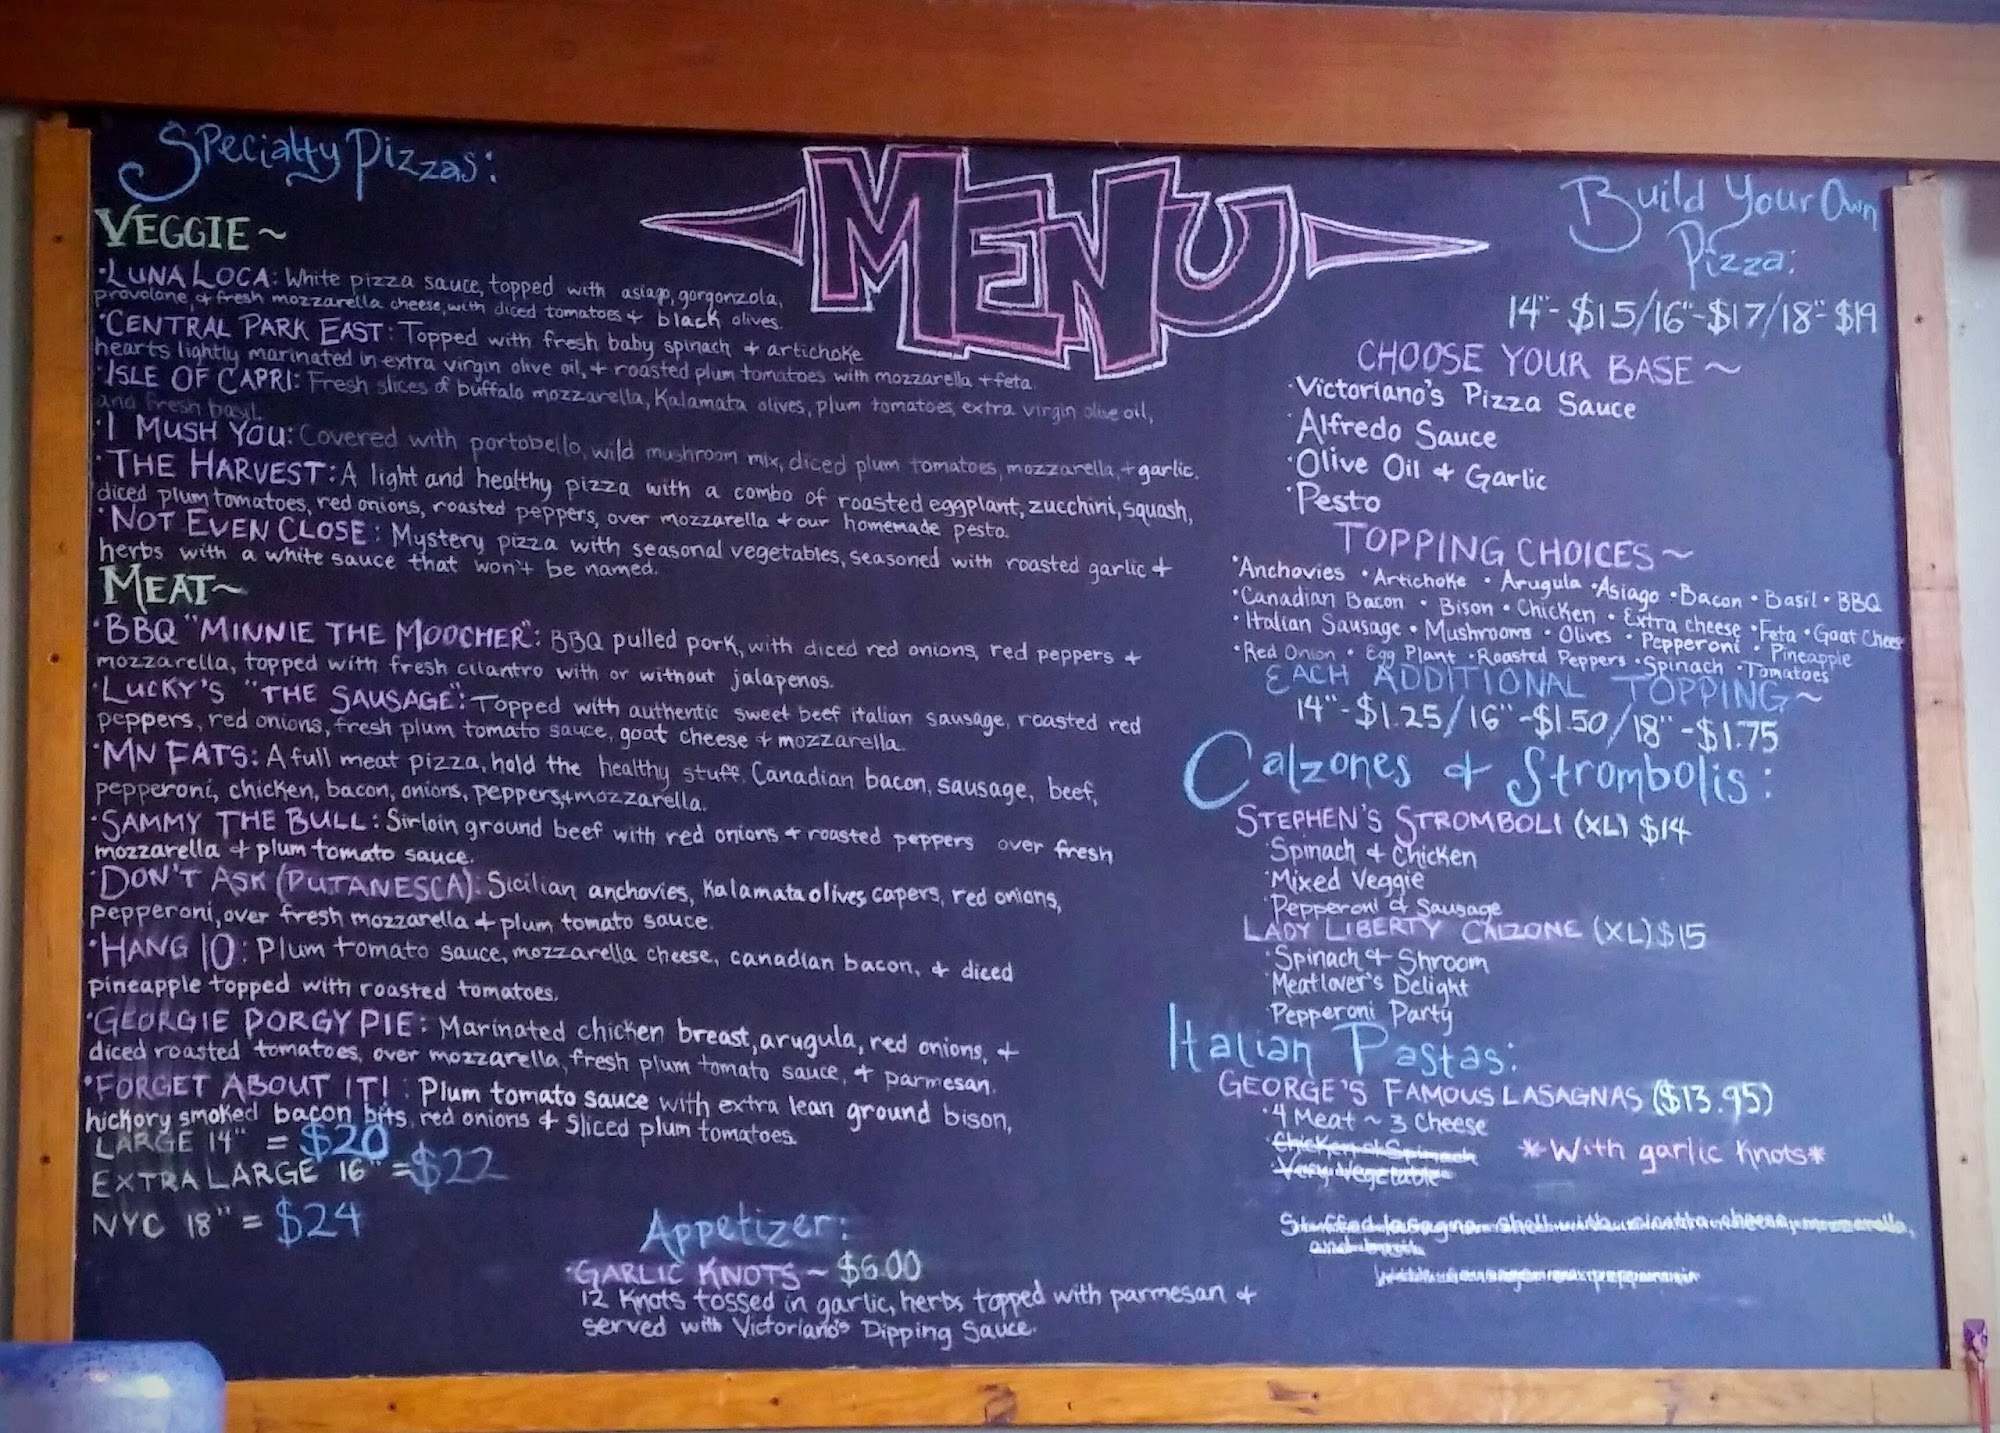 MENU
Specialty Pizzas:
VEGGIE~
·LUNA LOCA: White pizza sauce, topped with asiago, gorgonzola,
provolone, & fresh mozzarella cheese, with diced tomatoes & black olives.
·CENTRAL PARK EAST: Topped with fresh baby spinach & artichoke
hearts lightly marinated in extra virgin olive oil, & roasted plum tomatoes with mozzarella & feta.
·ISLE OF CAPRI: Fresh slices of buffalo mozzarella, Kalamata olives, plum tomatoes, extra virgin olive oil,
and fresh basil.
·I MUSH YOU: Covered with portobello, wild mushroom mix, diced plum tomatoes, mozzarella, & garlic.
·THE HARVEST: A light and healthy pizza with a combo of roasted eggplant, zucchini, squash,
diced plum tomatoes, red onions, roasted peppers, over mozzarella & our homemade pesto.
·NOT EVEN CLOSE: Mystery pizza with seasonal vegetables, seasoned with roasted garlic &
herbs with a white sauce that won't be named.
MEAT~
·BBQ "MINNIE THE MOOCHER": BBQ pulled pork, with diced red onions, red peppers &
mozzarella, topped with fresh cilantro with or without jalapenos.
·LUCKY'S "THE SAUSAGE": Topped with authentic sweet beef italian sausage, roasted red
peppers, red onions, fresh plum tomato sauce, goat cheese & mozzarella.
·MN FATS: A full meat pizza, hold the healthy stuff. Canadian bacon, sausage, beef,
pepperoni, chicken, bacon, onions, peppers, & mozzarella.
·SAMMY THE BULL: Sirloin ground beef with red onions & roasted peppers over fresh
mozzarella & plum tomato sauce.
·DON'T ASK (PUTANESCA): Sicilian anchovies, Kalamata olives, capers, red onions,
pepperoni, over fresh mozzarella & plum tomato sauce.
·HANG 10: Plum tomato sauce, mozzarella cheese, canadian bacon, & diced
pineapple topped with roasted tomatoes.
·GEORGIE PORGY PIE: Marinated chicken breast, arugula, red onions, &
diced roasted tomatoes, over mozzarella, fresh plum tomato sauce, & parmesan.
·FORGET ABOUT IT!: Plum tomato sauce with extra lean ground bison,
hickory smoked bacon bits, red onions & sliced plum tomatoes.
LARGE 14" = $20
EXTRA LARGE 16" = $22
NYC 18" = $24
Appetizer:
·GARLIC KNOTS ~ $6.00
12 Knots tossed in garlic, herbs topped with parmesan &
served with Victoriano's Dipping Sauce.
Build Your Own
Pizza:
14"-$15/16"-$17/18"-$19
CHOOSE YOUR BASE~
·Victoriano's Pizza Sauce
·Alfredo Sauce
·Olive Oil & Garlic
·Pesto
TOPPING CHOICES~
·Anchovies ·Artichoke ·Arugula ·Asiago ·Bacon ·Basil ·BBQ
·Canadian Bacon ·Bison ·Chicken ·Extra cheese ·Feta ·Goat Cheese
·Italian Sausage ·Mushrooms ·Olives ·Pepperoni ·Pineapple
·Red Onion ·Egg Plant ·Roasted Peppers ·Spinach ·Tomatoes
EACH ADDITIONAL TOPPING~
14"-$1.25/16"-$1.50/18"-$1.75
Calzones & Strombolis:
STEPHEN'S STROMBOLI (XL) $14
·Spinach & Chicken
·Mixed Veggie
·Pepperoni & Sausage
LADY LIBERTY CALZONE (XL) $15
·Spinach & Shroom
·Meatlover's Delight
·Pepperoni Party
Italian Pastas:
GEORGE'S FAMOUS LASAGNAS ($13.95)
·4 Meat ~ 3 Cheese
·Chicken & Spinach
·Very Vegetable
*With garlic Knots*
Stuffed lasagna shell cheese, mozzarella,
and